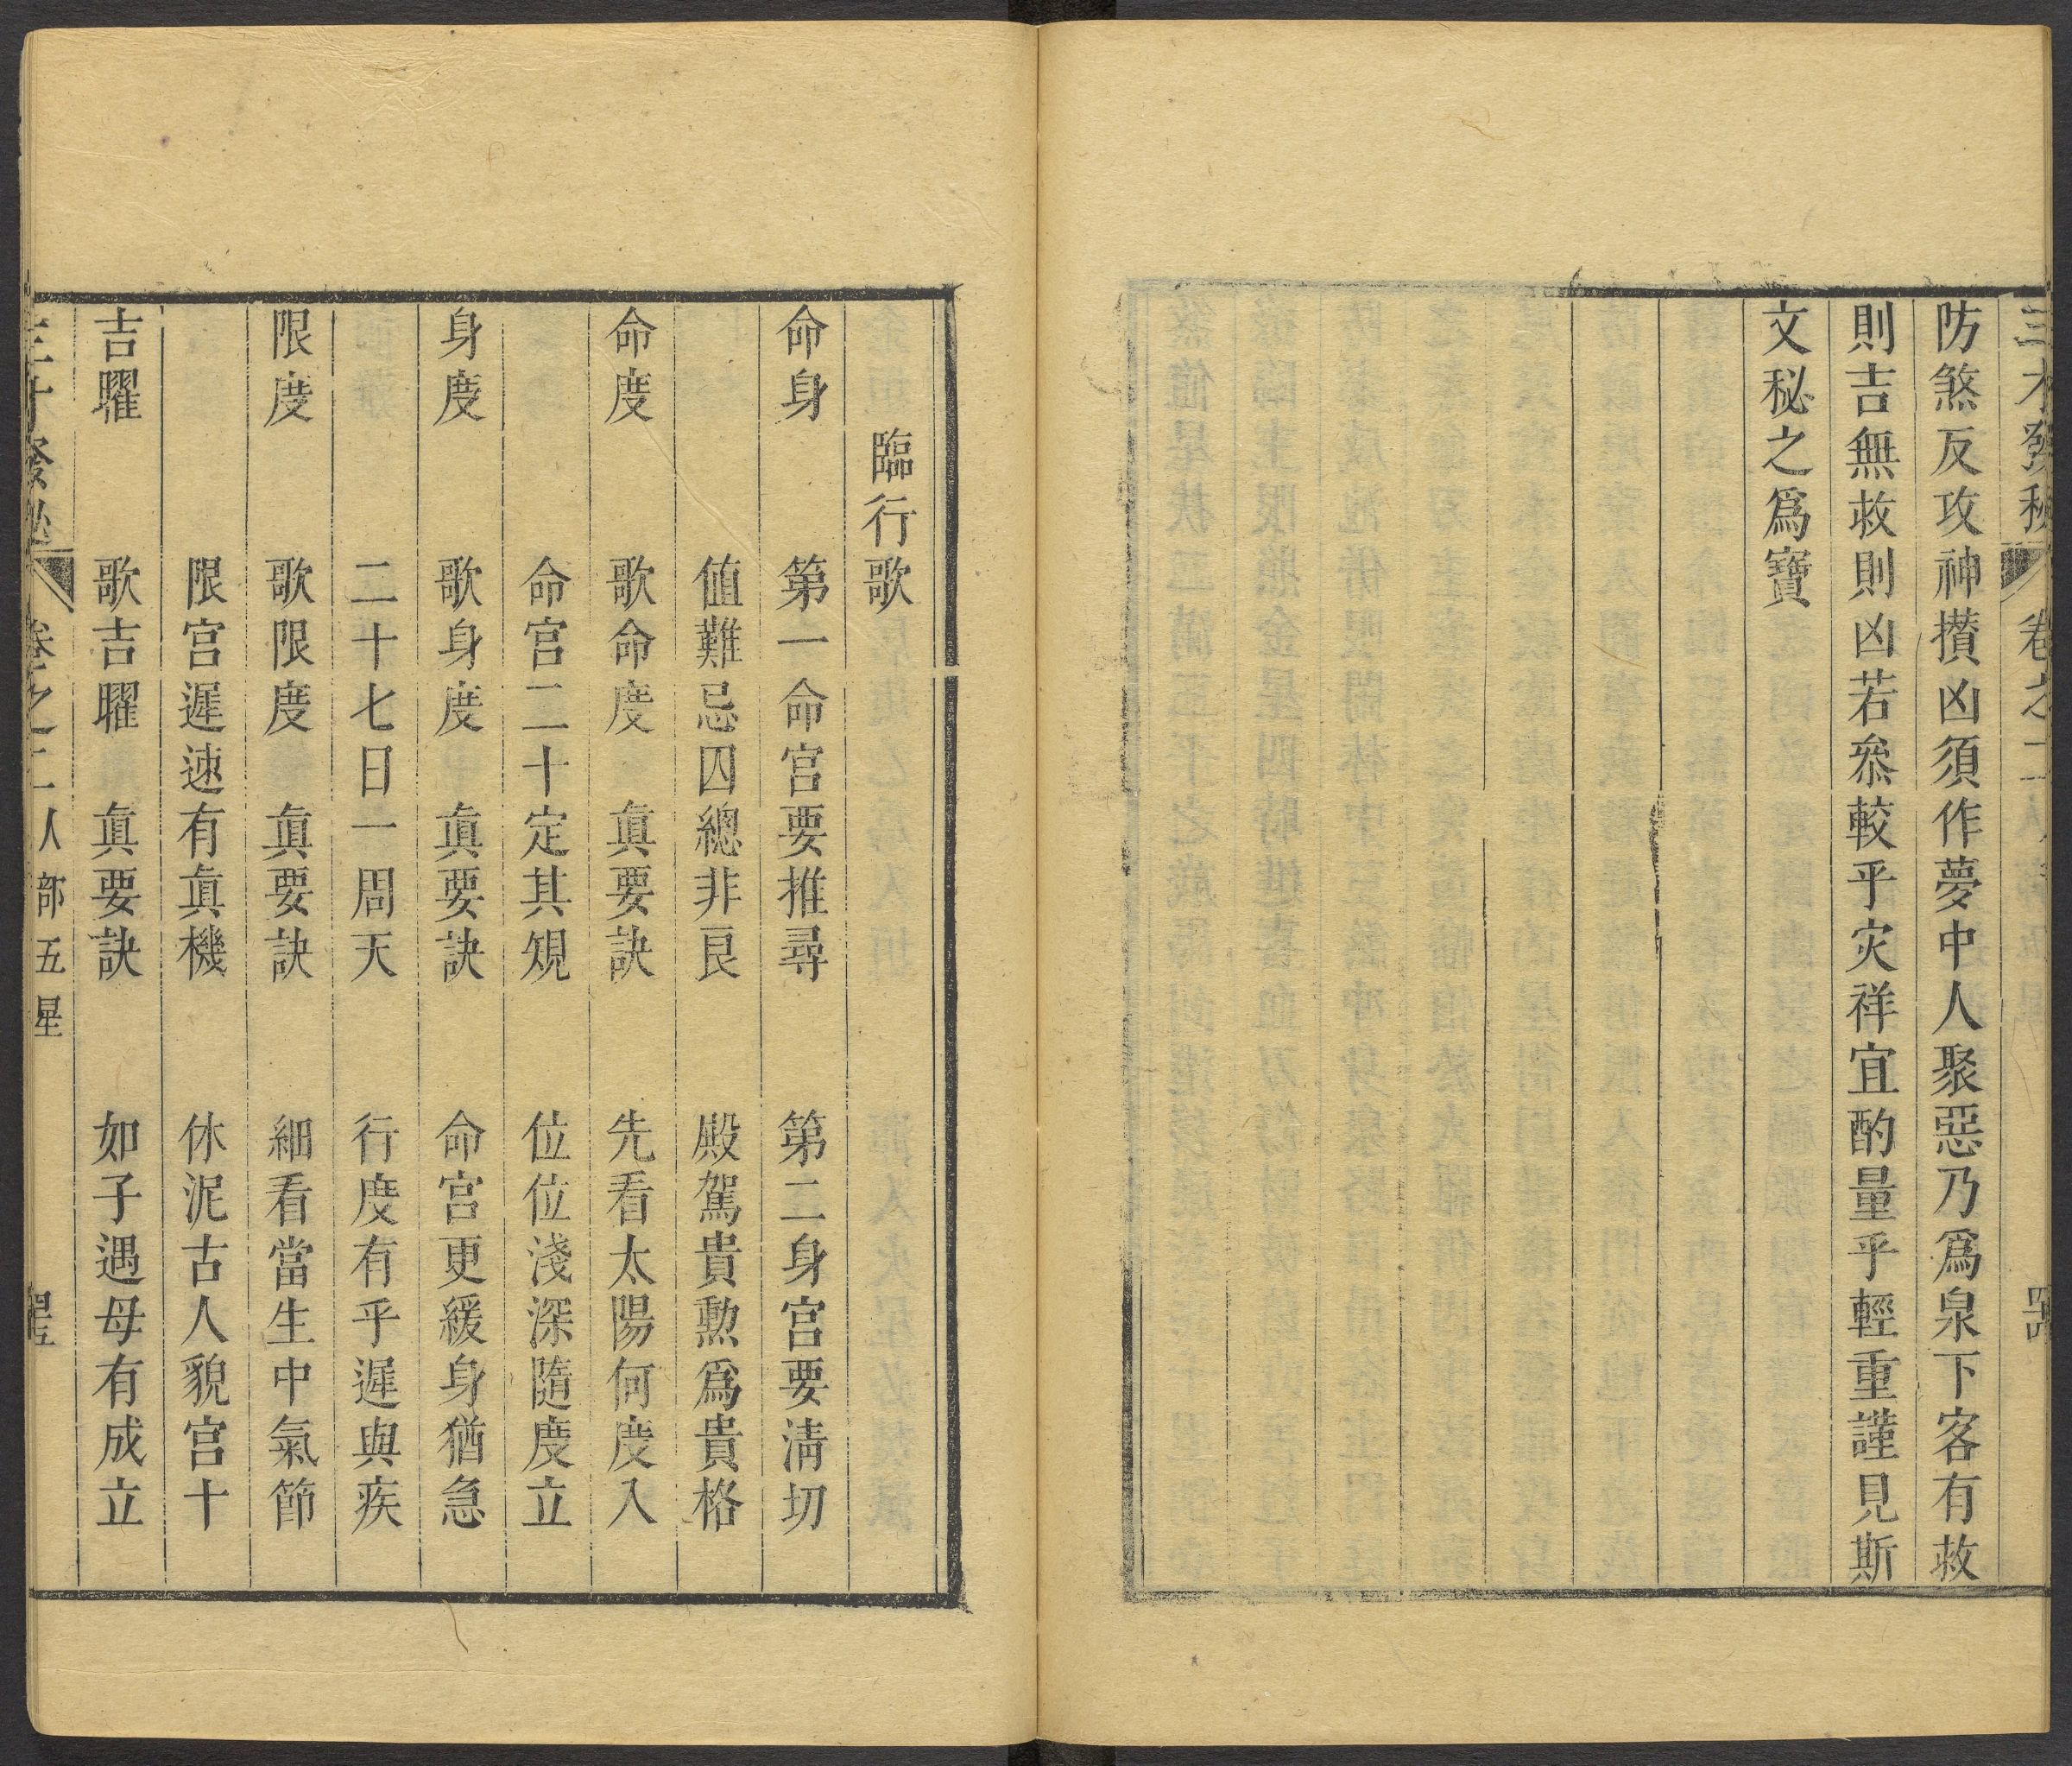 三才發秘 卷之二人部五星
防煞反攻神攢凶須作夢中人聚惡乃爲泉下客有救
則吉無救則凶若叅較乎灾祥宜酌量乎輕重謹見斯
文秘之爲寶
臨行歌
命身 第一命宫要推尋 第二身宫要淸切
值難忌囚總非良 殿駕貴勲爲貴格
命度 歌命度 眞要訣 先看太陽何度入
命宫二十定其規 位位淺深隨度立
身度 歌身度 眞要訣 命宫更緩身猶急
二十七日一周天 行度有乎遲與疾
限度 歌限度 眞要訣 細看當生中氣節
限宫遲速有眞機 休泥古人貌宫十
吉曜 歌吉曜 眞要訣 如子遇母有成立
三才發秘 卷之二人部五星